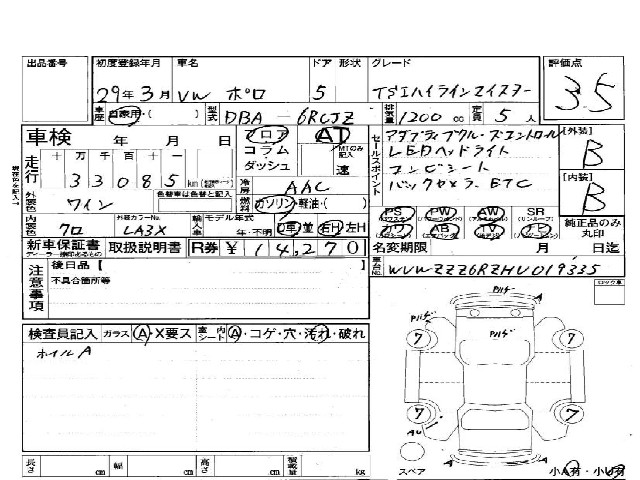 出品番号 初度登録年月 車名 ドア 形状 グレード 評価点
29年3月 VW ポロ 5 TSIハイラインマイスター 3.5
車歴 自家用・( ) 型式 DBA-6RCJZ 排気量 1200 cc 定員 5人
車検 年 月 日 フロア AT アダプティブクルーズコントロール [外装]
走行 十万 万 千 百 十 コラム MTのみ記入 セールスポイント LEDヘッドライト B
33085 km ダッシュ 速 コンビシート [内装]
外装色 色替車は色替と記入 冷房 AAC バックカメラ. ETC B
ワイン 燃料 ガソリン・軽油・( ) PS PW AW SR
内装色 クロ 外装カラーNo. LA3X 輸入車 モデル年式 年・不明 D車・並 右H・左H カワ AB TV 純正品のみ丸印
新車保証書 取扱説明書 R券 ¥14,270 名変期限 月 日迄
車台No. WVWZZZ6RZHU019335
注意事項 後日品【 】
不具合箇所等
検査員記入 ガラス A・X要ス 室内 シート A・コゲ・穴・汚れ・破れ
ホイルA
7 7
7 7
A
A
スペア 小A有・小U有
長さ cm 幅 cm 高さ cm 積載量 kg